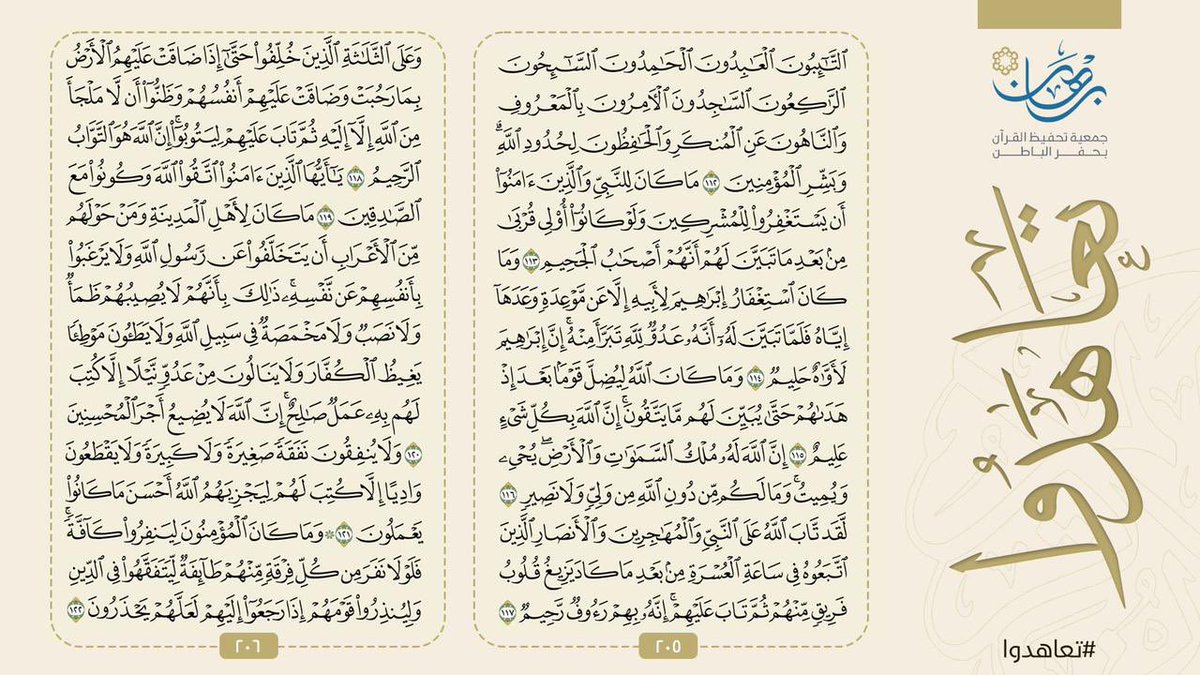 برهان
جمعية تحفيظ القرآن
بحفر الباطن
تعاهدوا
#تعاهدوا
ٱلتَّـٰٓئِبُونَ ٱلْعَـٰبِدُونَ ٱلْحَـٰمِدُونَ ٱلسَّـٰٓئِحُونَ
ٱلرَّٰكِعُونَ ٱلسَّـٰجِدُونَ ٱلْـَٔامِرُونَ بِٱلْمَعْرُوفِ
وَٱلنَّاهُونَ عَنِ ٱلْمُنكَرِ وَٱلْحَـٰفِظُونَ لِحُدُودِ ٱللَّهِ ۗ
وَبَشِّرِ ٱلْمُؤْمِنِينَ ١١٢ مَا كَانَ لِلنَّبِيِّ وَٱلَّذِينَ ءَامَنُوٓا۟
أَن يَسْتَغْفِرُوا۟ لِلْمُشْرِكِينَ وَلَوْ كَانُوٓا۟ أُو۟لِى قُرْبَىٰ
مِنۢ بَعْدِ مَا تَبَيَّنَ لَهُمْ أَنَّهُمْ أَصْحَـٰبُ ٱلْجَحِيمِ ١١٣ وَمَا
كَانَ ٱسْتِغْفَارُ إِبْرَٰهِيمَ لِأَبِيهِ إِلَّا عَن مَّوْعِدَةٍ وَعَدَهَآ
إِيَّاهُ فَلَمَّا تَبَيَّنَ لَهُۥٓ أَنَّهُۥ عَدُوٌّ لِّلَّهِ تَبَرَّأَ مِنْهُ ۚ إِنَّ إِبْرَٰهِيمَ
لَأَوَّٰهٌ حَلِيمٌ ١١٤ وَمَا كَانَ ٱللَّهُ لِيُضِلَّ قَوْمًۢا بَعْدَ إِذْ
هَدَىٰهُمْ حَتَّىٰ يُبَيِّنَ لَهُم مَّا يَتَّقُونَ ۚ إِنَّ ٱللَّهَ بِكُلِّ شَىْءٍ
عَلِيمٌ ١١٥ إِنَّ ٱللَّهَ لَهُۥ مُلْكُ ٱلسَّمَـٰوَٰتِ وَٱلْأَرْضِ ۖ يُحْىِۦ
وَيُمِيتُ ۚ وَمَا لَكُم مِّن دُونِ ٱللَّهِ مِن وَلِىٍّ وَلَا نَصِيرٍ ١١٦
لَّقَد تَّابَ ٱللَّهُ عَلَى ٱلنَّبِىِّ وَٱلْمُهَـٰجِرِينَ وَٱلْأَنصَارِ ٱلَّذِينَ
ٱتَّبَعُوهُ فِى سَاعَةِ ٱلْعُسْرَةِ مِنۢ بَعْدِ مَا كَادَ يَزِيغُ قُلُوبُ
فَرِيقٍ مِّنْهُمْ ثُمَّ تَابَ عَلَيْهِمْ ۚ إِنَّهُۥ بِهِمْ رَءُوفٌ رَّحِيمٌ ١١٧
٢٠٥
وَعَلَى ٱلثَّلَـٰثَةِ ٱلَّذِينَ خُلِّفُوا۟ حَتَّىٰٓ إِذَا ضَاقَتْ عَلَيْهِمُ ٱلْأَرْضُ
بِمَا رَحُبَتْ وَضَاقَتْ عَلَيْهِمْ أَنفُسُهُمْ وَظَنُّوٓا۟ أَن لَّا مَلْجَأَ
مِنَ ٱللَّهِ إِلَّآ إِلَيْهِ ثُمَّ تَابَ عَلَيْهِمْ لِيَتُوبُوٓا۟ ۚ إِنَّ ٱللَّهَ هُوَ ٱلتَّوَّابُ
ٱلرَّحِيمُ ١١٨ يَـٰٓأَيُّهَا ٱلَّذِينَ ءَامَنُوا۟ ٱتَّقُوا۟ ٱللَّهَ وَكُونُوا۟ مَعَ
ٱلصَّـٰدِقِينَ ١١٩ مَا كَانَ لِأَهْلِ ٱلْمَدِينَةِ وَمَنْ حَوْلَهُم
مِّنَ ٱلْأَعْرَابِ أَن يَتَخَلَّفُوا۟ عَن رَّسُولِ ٱللَّهِ وَلَا يَرْغَبُوا۟
بِأَنفُسِهِمْ عَن نَّفْسِهِۦ ۚ ذَٰلِكَ بِأَنَّهُمْ لَا يُصِيبُهُمْ ظَمَأٌ
وَلَا نَصَبٌ وَلَا مَخْمَصَةٌ فِى سَبِيلِ ٱللَّهِ وَلَا يَطَـُٔونَ مَوْطِئًا
يَغِيظُ ٱلْكُفَّارَ وَلَا يَنَالُونَ مِنْ عَدُوٍّ نَّيْلًا إِلَّا كُتِبَ
لَهُم بِهِۦ عَمَلٌ صَـٰلِحٌ ۚ إِنَّ ٱللَّهَ لَا يُضِيعُ أَجْرَ ٱلْمُحْسِنِينَ
١٢٠ وَلَا يُنفِقُونَ نَفَقَةً صَغِيرَةً وَلَا كَبِيرَةً وَلَا يَقْطَعُونَ
وَادِيًا إِلَّا كُتِبَ لَهُمْ لِيَجْزِيَهُمُ ٱللَّهُ أَحْسَنَ مَا كَانُوا۟
يَعْمَلُونَ ١٢١ ۞ وَمَا كَانَ ٱلْمُؤْمِنُونَ لِيَنفِرُوا۟ كَآفَّةً ۚ
فَلَوْلَا نَفَرَ مِن كُلِّ فِرْقَةٍ مِّنْهُمْ طَآئِفَةٌ لِّيَتَفَقَّهُوا۟ فِى ٱلدِّينِ
وَلِيُنذِرُوا۟ قَوْمَهُمْ إِذَا رَجَعُوٓا۟ إِلَيْهِمْ لَعَلَّهُمْ يَحْذَرُونَ ١٢٢
٢٠٦